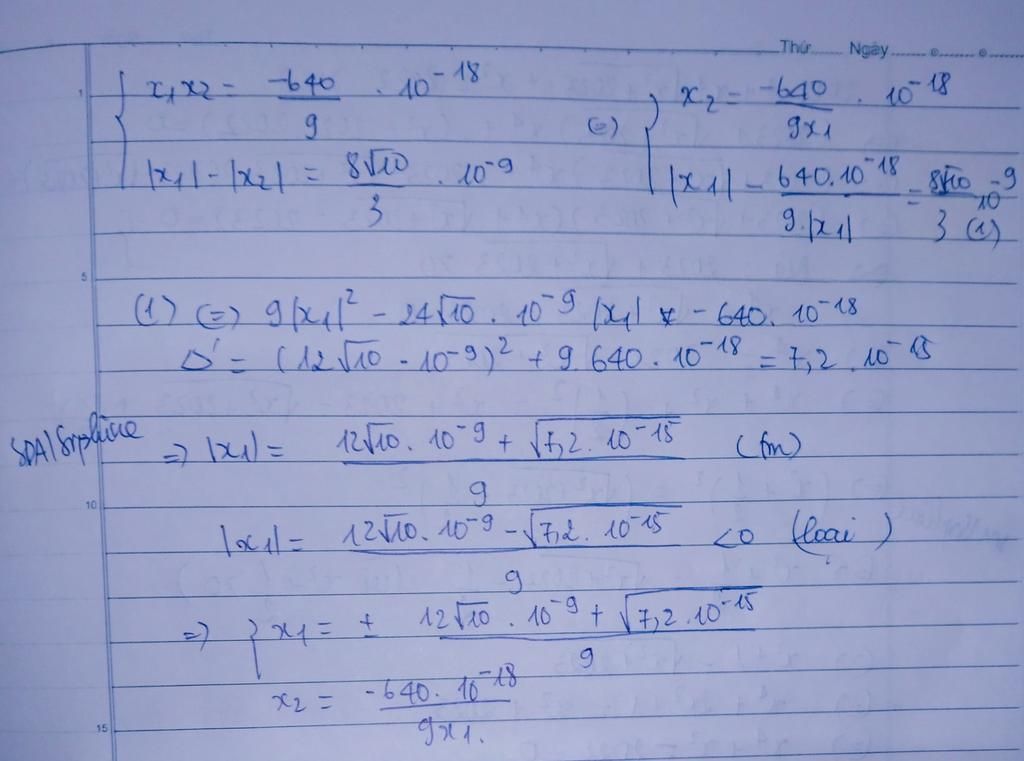 Thứ........ Ngày........
1
{ x₁x₂ = -640/9 . 10⁻¹⁸ (=) { x₂ = -640/9x₁ . 10⁻¹⁸
|x₁| - |x₂| = 8√10/3 . 10⁻⁹ |x₁| - 640.10⁻¹⁸/9.|x₁| = 8√10/3 10⁻⁹ (1)
5
(1) (=) 9|x₁|² - 24√10 . 10⁻⁹ |x₁| - 640. 10⁻¹⁸
Δ' = (12√10 - 10⁻⁹)² + 9. 640 . 10⁻¹⁸ = 7,2 . 10⁻¹⁵
=> |x₁| = 12√10. 10⁻⁹ + √7,2. 10⁻¹⁵/9 (tm)
10
|x₁| = 12√10. 10⁻⁹ - √7,2. 10⁻¹⁵/9 <0 (loại)
=> { x₁ = ± 12√10 . 10⁻⁹ + √7,2.10⁻¹⁵/9
x₂ = -640. 10⁻¹⁸/9x₁.
15